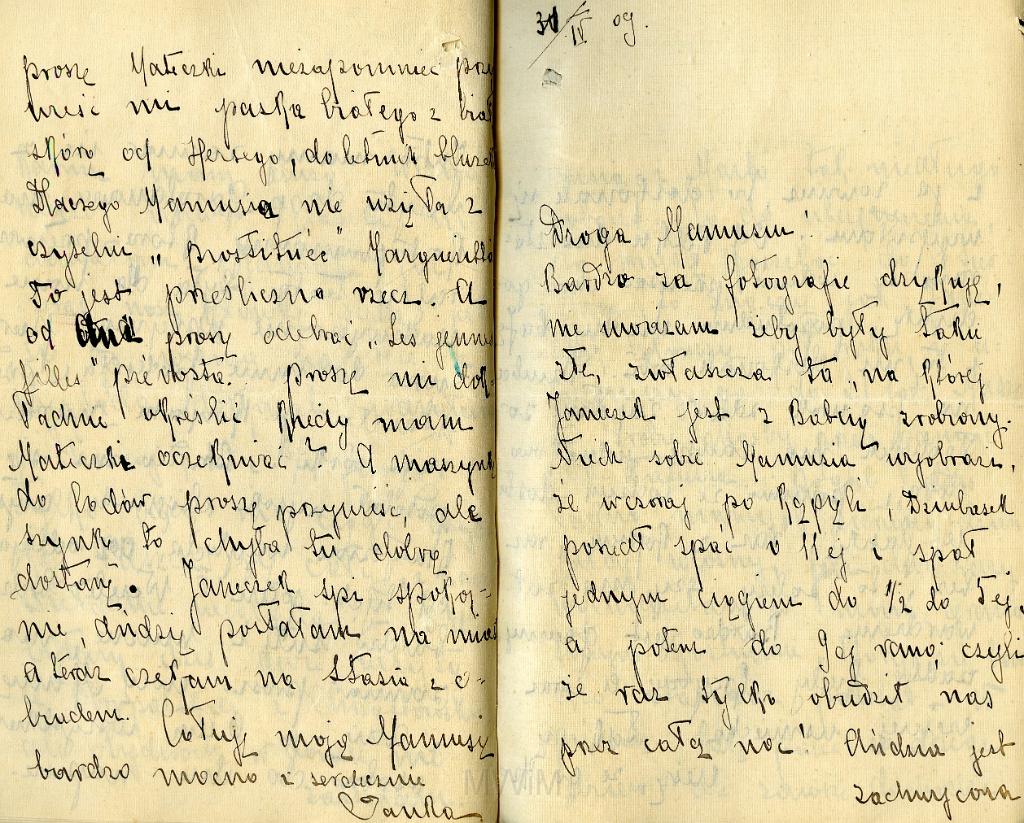 proszę Mateczki niezapomnieć przy
wieść mi paska białego z biał
skórą od Hersego, do letnich bluzek
Dlaczego Mamusia nie użyła z
czytelni „prostituée" Margueritte
To jest prześliczna rzecz. A
od proszę odebrać „Les
filles" Prevosta. proszę mi dok-
ładnie określić kiedy mam
Mateczki oczekiwać? A maszynkę
do lodów proszę przywieść, ale
szynkę to chyba tu dobrą
dostanę. Janeczek śpi spokoj-
nie Andzię posłałam na miasto
A teraz czekam na Stasia z o-
biadem. Całuję moją Mamusię
bardzo mocno i serdecznie
Janka
IV 09.
Droga Mamusiu!
Bardzo za fotografie dziękuję,
nie uważam żeby były takie
złe, zwłaszcza ta, na której
Janeczek jest z Babcią zrobiony.
Niech sobie Mamusia wyobrazi,
że wczoraj po kąpieli, Dziubasek
poszedł spać o 11ej i spał
jednym ciągiem do 1/2 do 7ej,
a potem do 9ej rano, czyli
że raz tylko obudził nas
przez całą noc! Andzia jest
zachwycona
MWiM